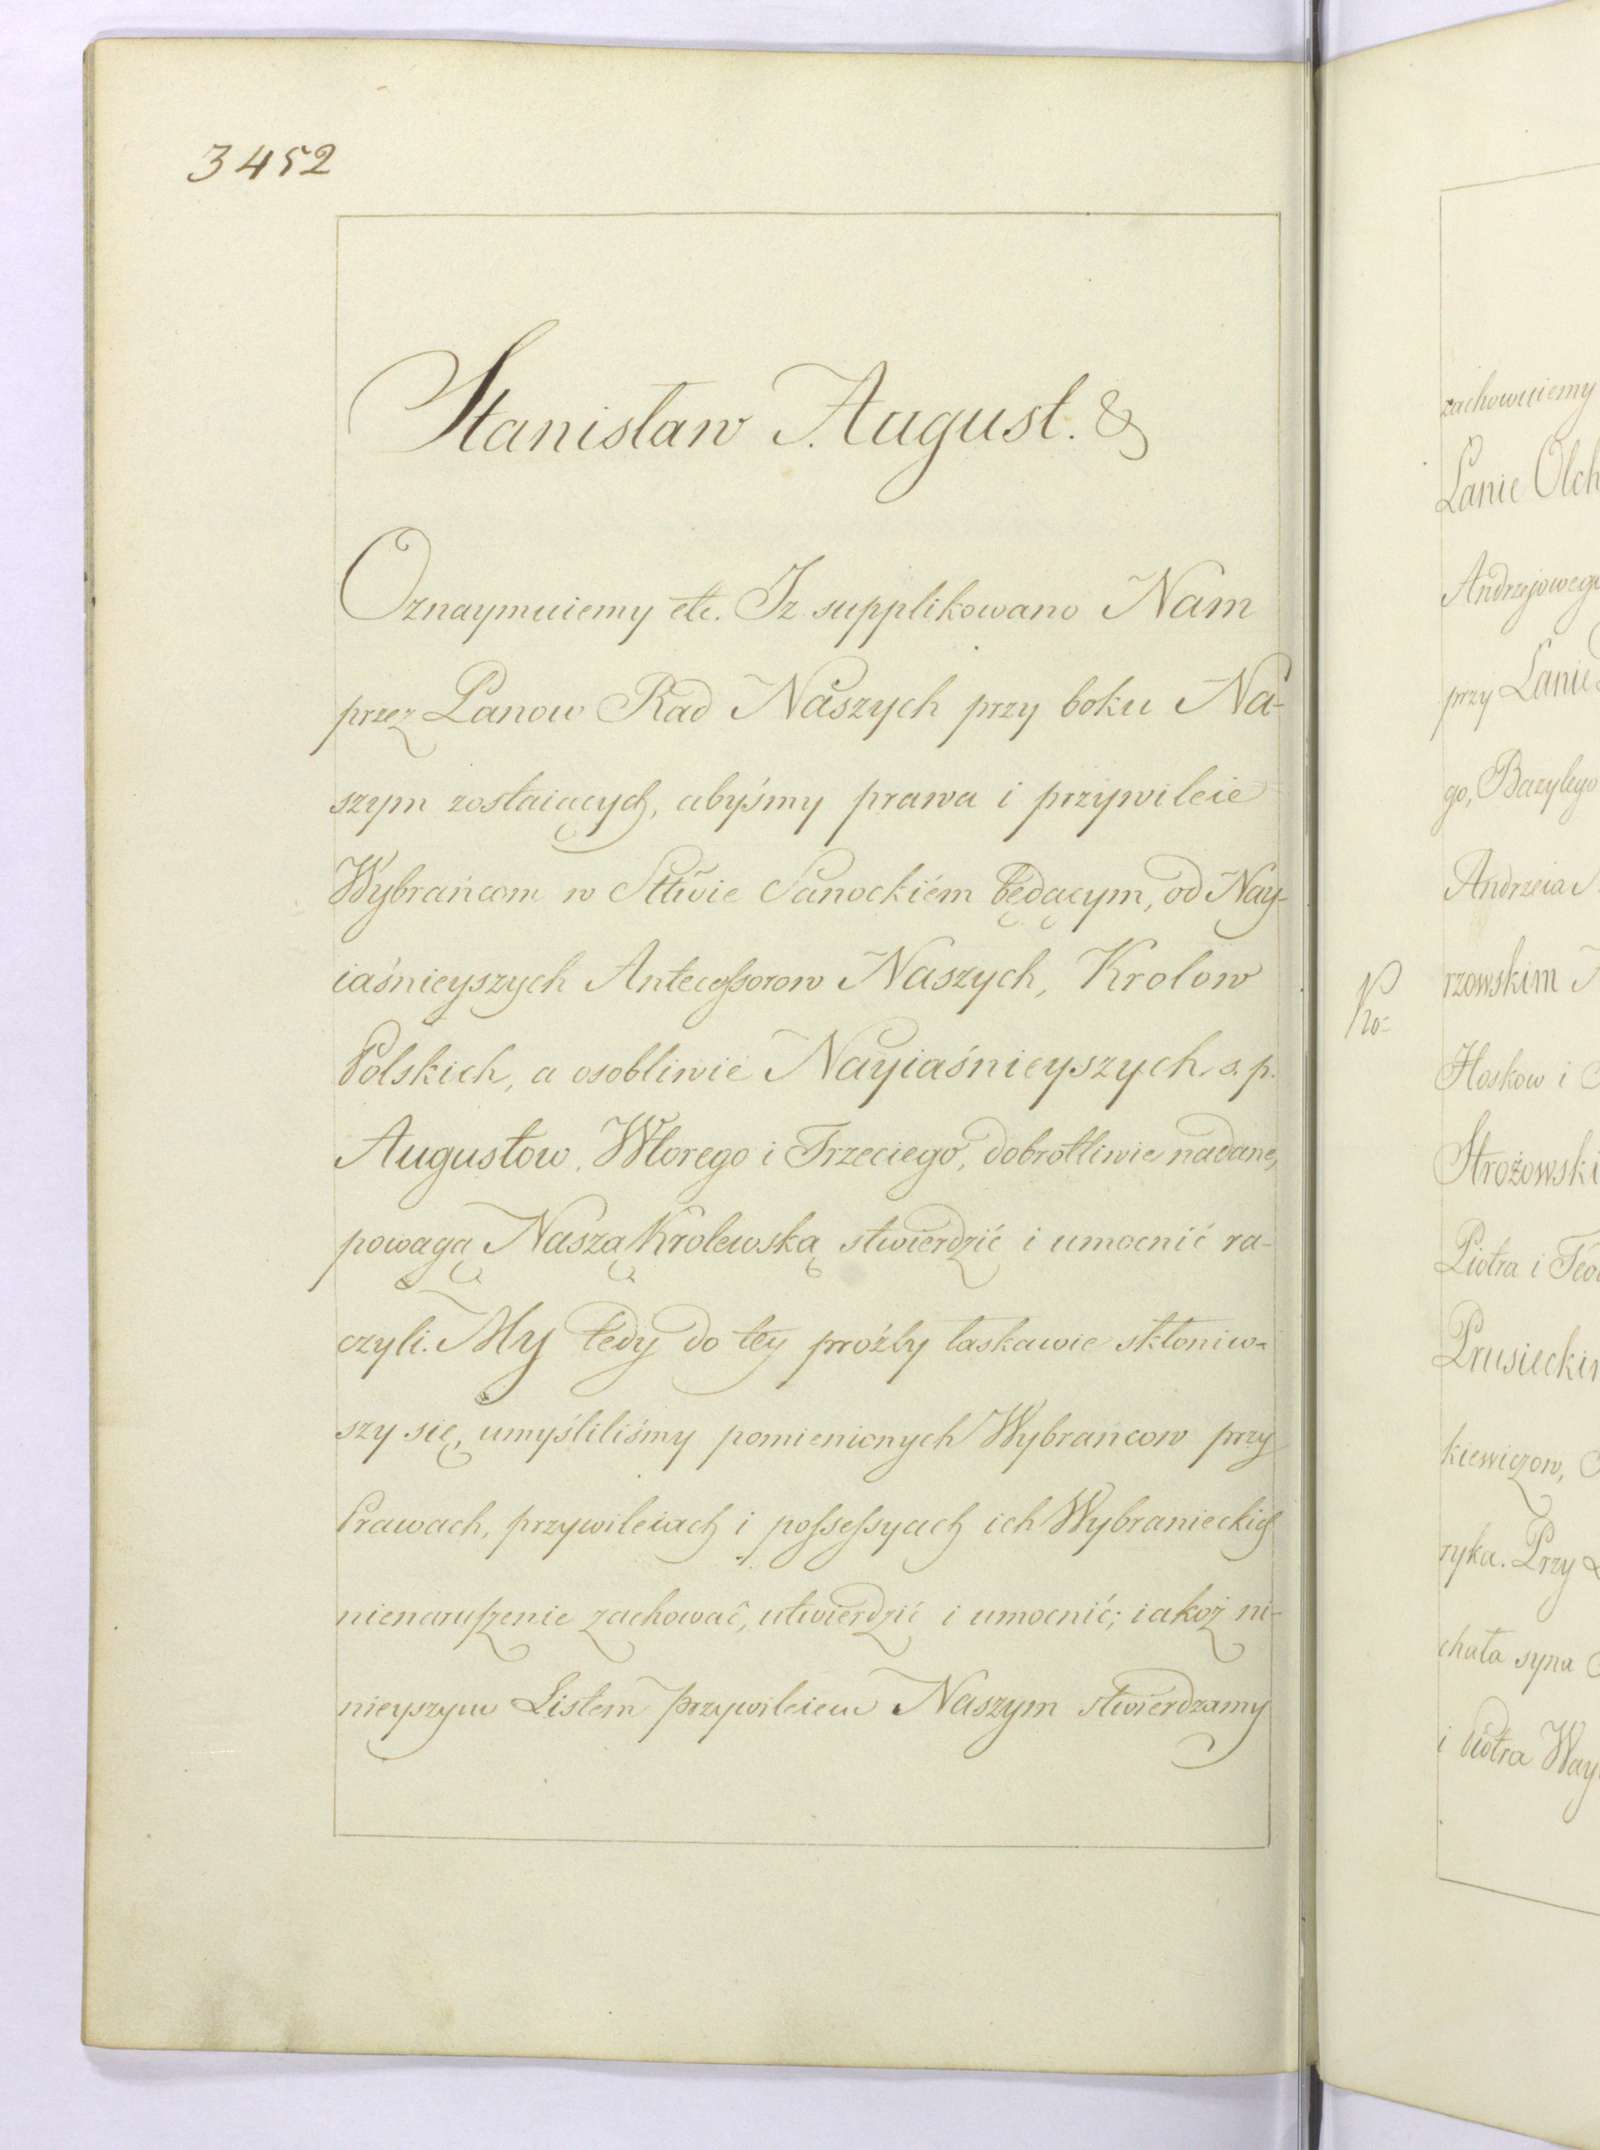 3452
Stanisław August. &
Oznaymuiemy etc. Iz supplikowano Nam
przez Panow Rad Naszych przy boku Na-
szym zostaiących, abyśmy prawa i przywileie
Wybrańcom w Sttwie Sanockiém będącym, od Nay-
iaśnieyszych Antecessorow Naszych, Krolow
Polskich, a osobliwie Nayiaśnieyszych s. p.
Augustow, Wtorego i Trzeciego, dobrotliwie nadane,
powagą Naszą Krolewską stwierdzić i umocnić ra-
czyli. My tedy do tey proźby łaskawie skłoniw-
szy się, umyśliliśmy pomienionych Wybrańcow przy
Prawach, przywileiach i possessyach ich Wybranieckich
nienaruszenie zachować, utwierdzić i umocnić; iakoż ni-
nieyszym Listem przywileiem Naszym stwierdzamy
zachowuiemy
Łanie Olch
Andrzejowego
przy Łanie
go, Bazylego
Andrzeia
rzowskim
Hoskow i
Strożowski
Piotra i Teo
Prusieckim
kiewiczow,
ryka. Przy
chała syna
i Piotra Way